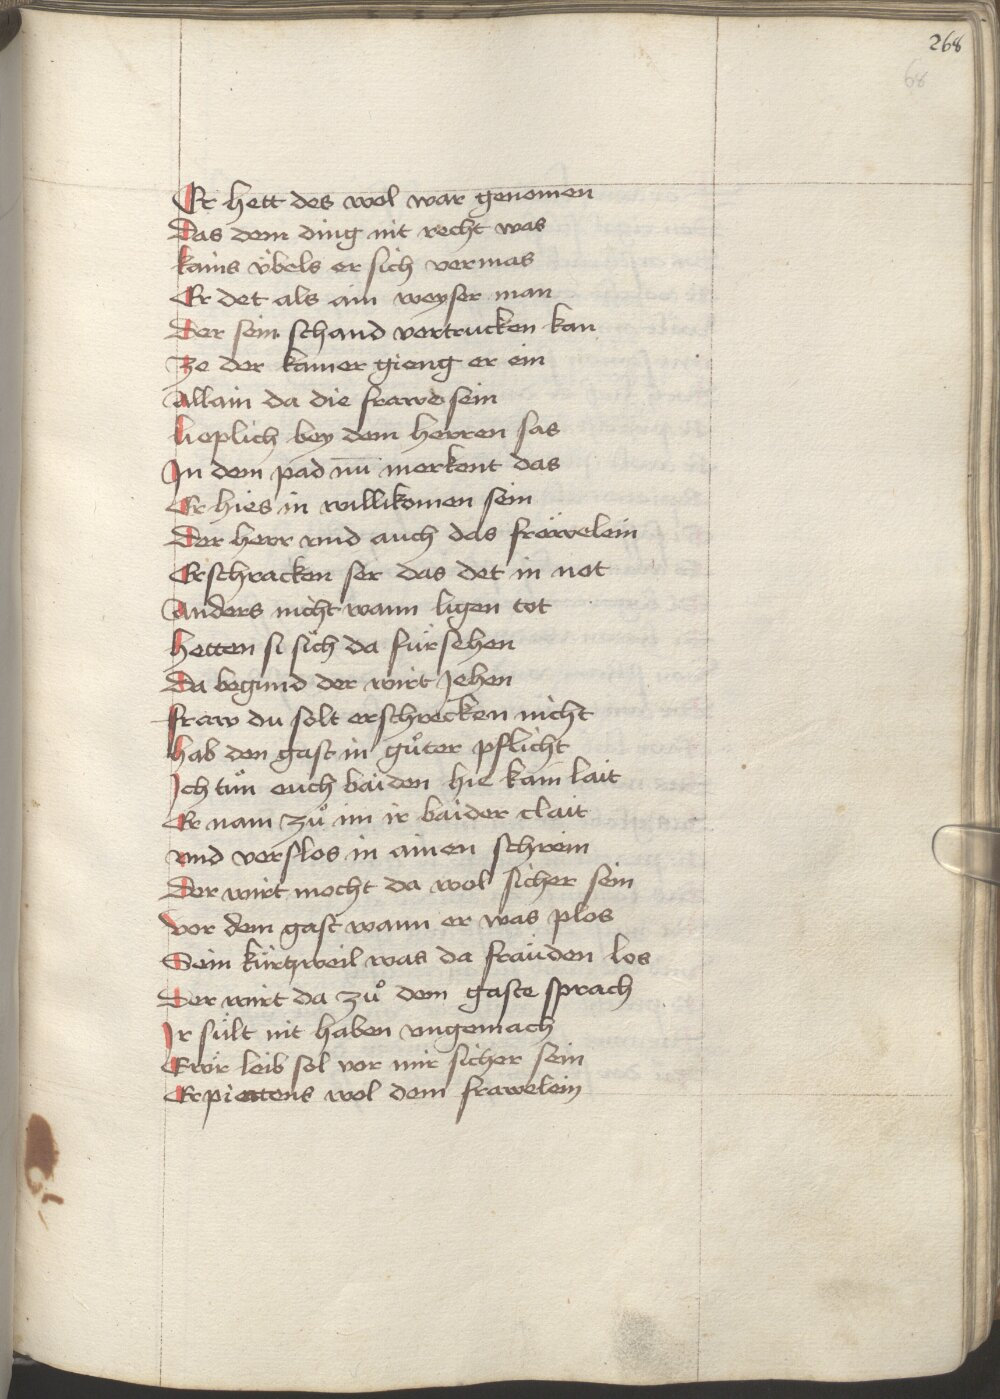 268
68
Er hett des wol war genomen
Das dem ding nit recht was
kains v̈bels er sich vermas
Er det als ain weyser man
Der sein schand vertrucken kan
Ze der kamer gieng er ein
Allain da die frawe sein
lieplich bey dem herren sas
In dem pad nū merkent das
Er hies in willikomen sein
Der herr vnd auch das fröwelein
Erschracken ser das det in not
Anders nicht wann ligen tot
hetten si sich da fürsehen
Da begund der wirt Jehen
fraw du solt erschrecken nicht
hab den gast in gůter pflicht
Ich tůn euch baiden hie kain lait
Er nam zů im ir baider clait
vnd verslos in ainen schrein
Der wirt mocht da wol sicher sein
vor dem gast wann er was plos
Sein kürtzweil was da fräuden los
Der wirt da zů dem gaste sprach
Ir sült nit haben vngemach
Ewr leib sol vor mir sicher sein
Erpietens wol dem frawelein